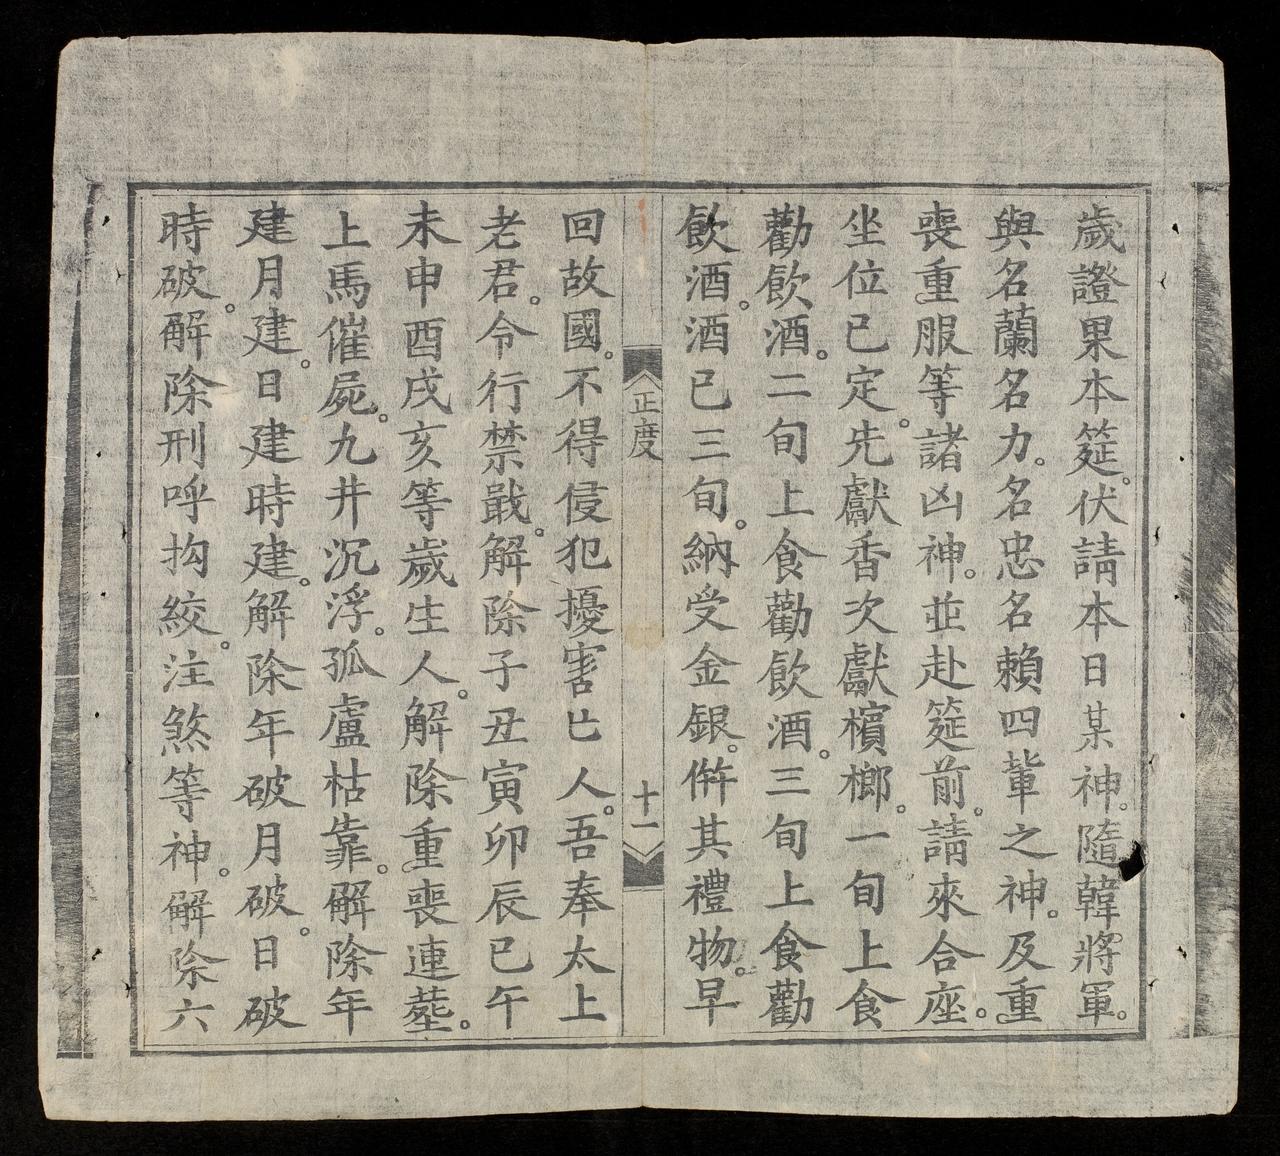 歲證果本筵。伏請本日某神。隨韓將軍。
與名蘭名力。名忠名賴四輩之神。及重
喪重服等諸凶神。並赴筵前。請來合座。
坐位已定。先獻香次獻檳榔。一旬上食
勸飲酒。二旬上食勸飲酒。三旬上食勸
飲酒。酒已三旬。納受金銀。併其禮物。早
正度
十一
回故國。不得侵犯擾害亡人。吾奉太上
老君。令行禁戢。解除子丑寅卯辰巳午
未申酉戌亥等歲生人。解除重喪連塟。
上馬催屍。九井沉浮。孤盧枯靠。解除年
建月建。日建時建。解除年破月破。日破
時破。解除刑呼拘絞。注煞等神。解除六